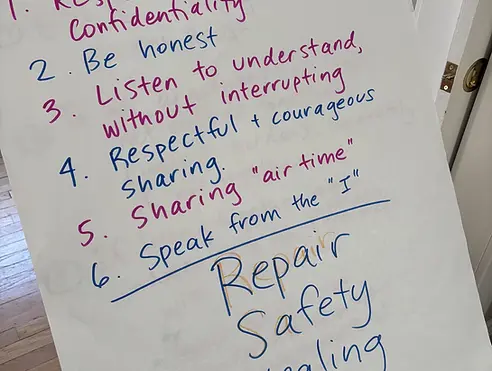 1.
Confidentiality
2. Be honest
3. Listen to understand,
without interrupting
4. Respectful + courageous
sharing.
5. Sharing "air time"
6. Speak from the "I"
Repair
Safety